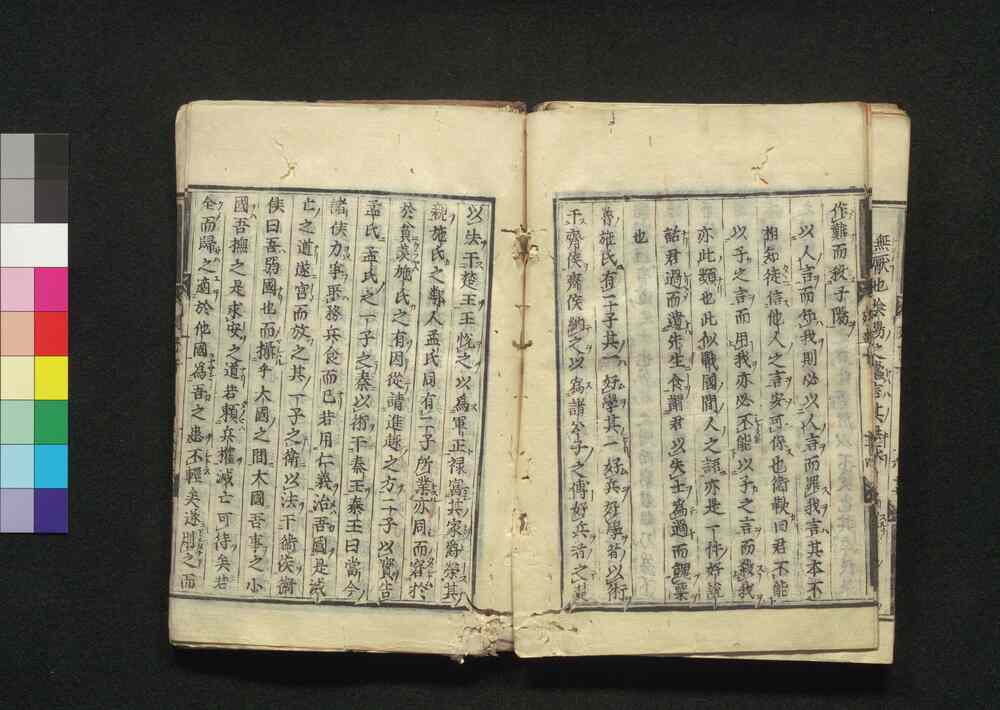 作難而殺子陽
以人言而◻我則必以人言而罪我言其本不
相知徒信他人之言安可保也衛鞅曰君不能
以子之言而用我亦必不能以子之言而殺我
亦此類也此拟戰國間人之語亦是一件好說
話君過而遺先生食謂君以失士為過而餽粟
也
魯施氏有二子其一好學其一好兵好學者以術
干齊侯齊侯納之以為諸公子之傅好兵者之楚
以法干楚王王悅之以為軍正祿富其家爵榮其
親施氏之鄰人孟氏同有二子所業亦同而窘於
於貧羨施氏之有因從請進趨之方二子以實告
孟氏孟氏之一子之秦以術干秦王秦王曰當今
諸侯力爭所務兵食而已若用仁義治吾國是滅
亡之道遂宮而放之其一子之衛以法干衛侯衛
侯曰吾弱國也而攝乎大國之間大國吾事之小
國吾撫之是求安之道若賴兵權滅亡可待矣若
全而歸之適於他國為吾之患不輕矣遂刖之而